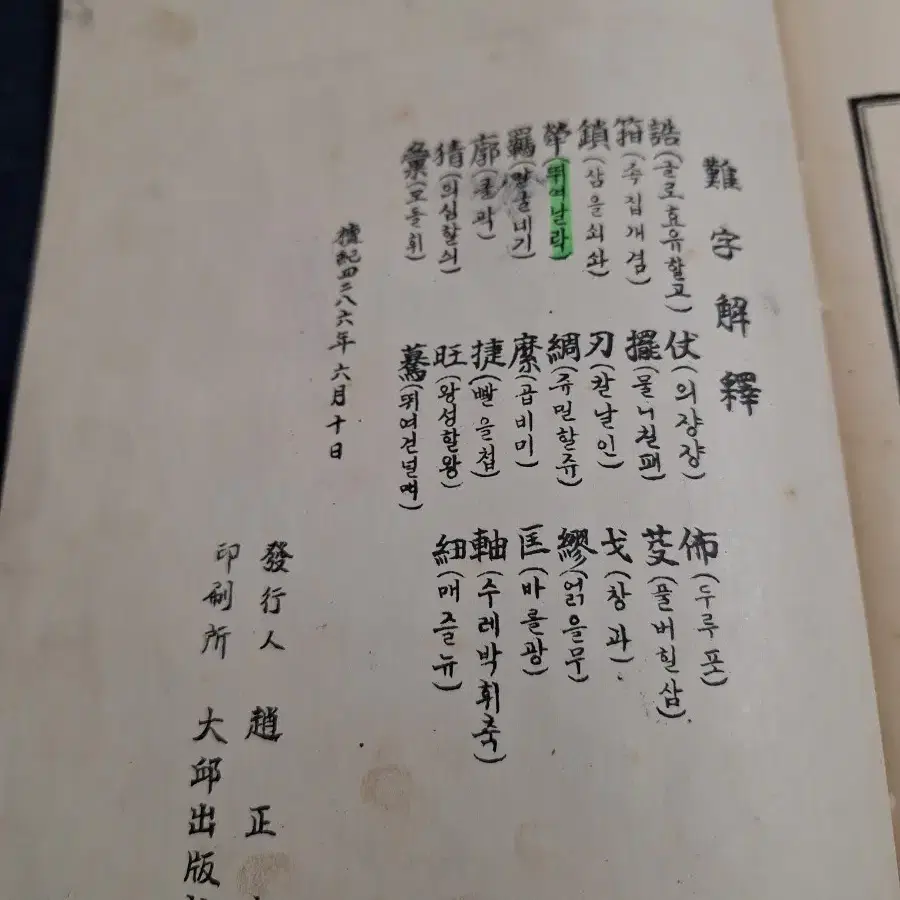 難字解釋
誥(글로효유할고) 仗(의쟝쟝) 佈(두루포)
箝(족집개겸) 擺(물니칠패) 芟(풀버힐삼)
鎖(삼을쇠솨) 刃(칼날인) 戈(창과)
犖(뛰여날락) 綢(쥬밀할쥬) 繆(얽을무)
羈 縻(곱비미) 匡(바를광)
廓(클곽) 捷(빨을첩) 軸(수레박휘축)
猜(의심할싀) 旺(왕성할왕) 紐(매즐뉴)
彙(모들휘) 驀(뛰여건널맥)
檀紀四二八六年六月十日
發行人 趙正
印刷所 大邱出版